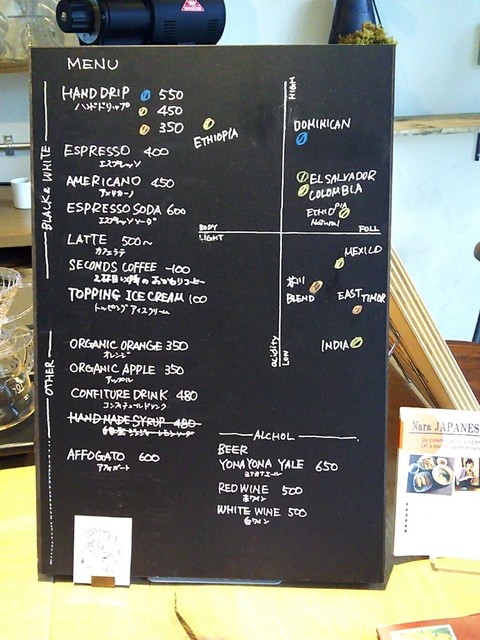 MENU
BLACK & WHITE
HAND DRIP 550
ハンドドリップ 450
350
ESPRESSO 400
エスプレッソ
AMERICANO 450
アメリカーノ
ESPRESSO SODA 600
エスプレッソソーダ
LATTE 500~
カフェラテ
SECONDS COFFEE -100
2杯目以降のおかわりコーヒー
TOPPING ICE CREAM 100
トッピングアイスクリーム
OTHER
ORGANIC ORANGE 350
オレンジ
ORGANIC APPLE 350
アップル
CONFITURE DRINK 480
コンフィチュールドリンク
HAND MADE SYRUP 480
AFFOGATO 600
アフォガート
HIGH
ETHIOPIA
DOMINICAN
EL SALVADOR
COLOMBIA
ETHIOPIA
Natural
BODY
LIGHT
FULL
MEXICO
BLEND
EAST TIMOR
INDIA
acidity
LOW
ALCHOL
BEER
YONA YONA YALE 650
ヨナヨナエール
RED WINE 500
赤ワイン
WHITE WINE 500
白ワイン
Nara JAPANES